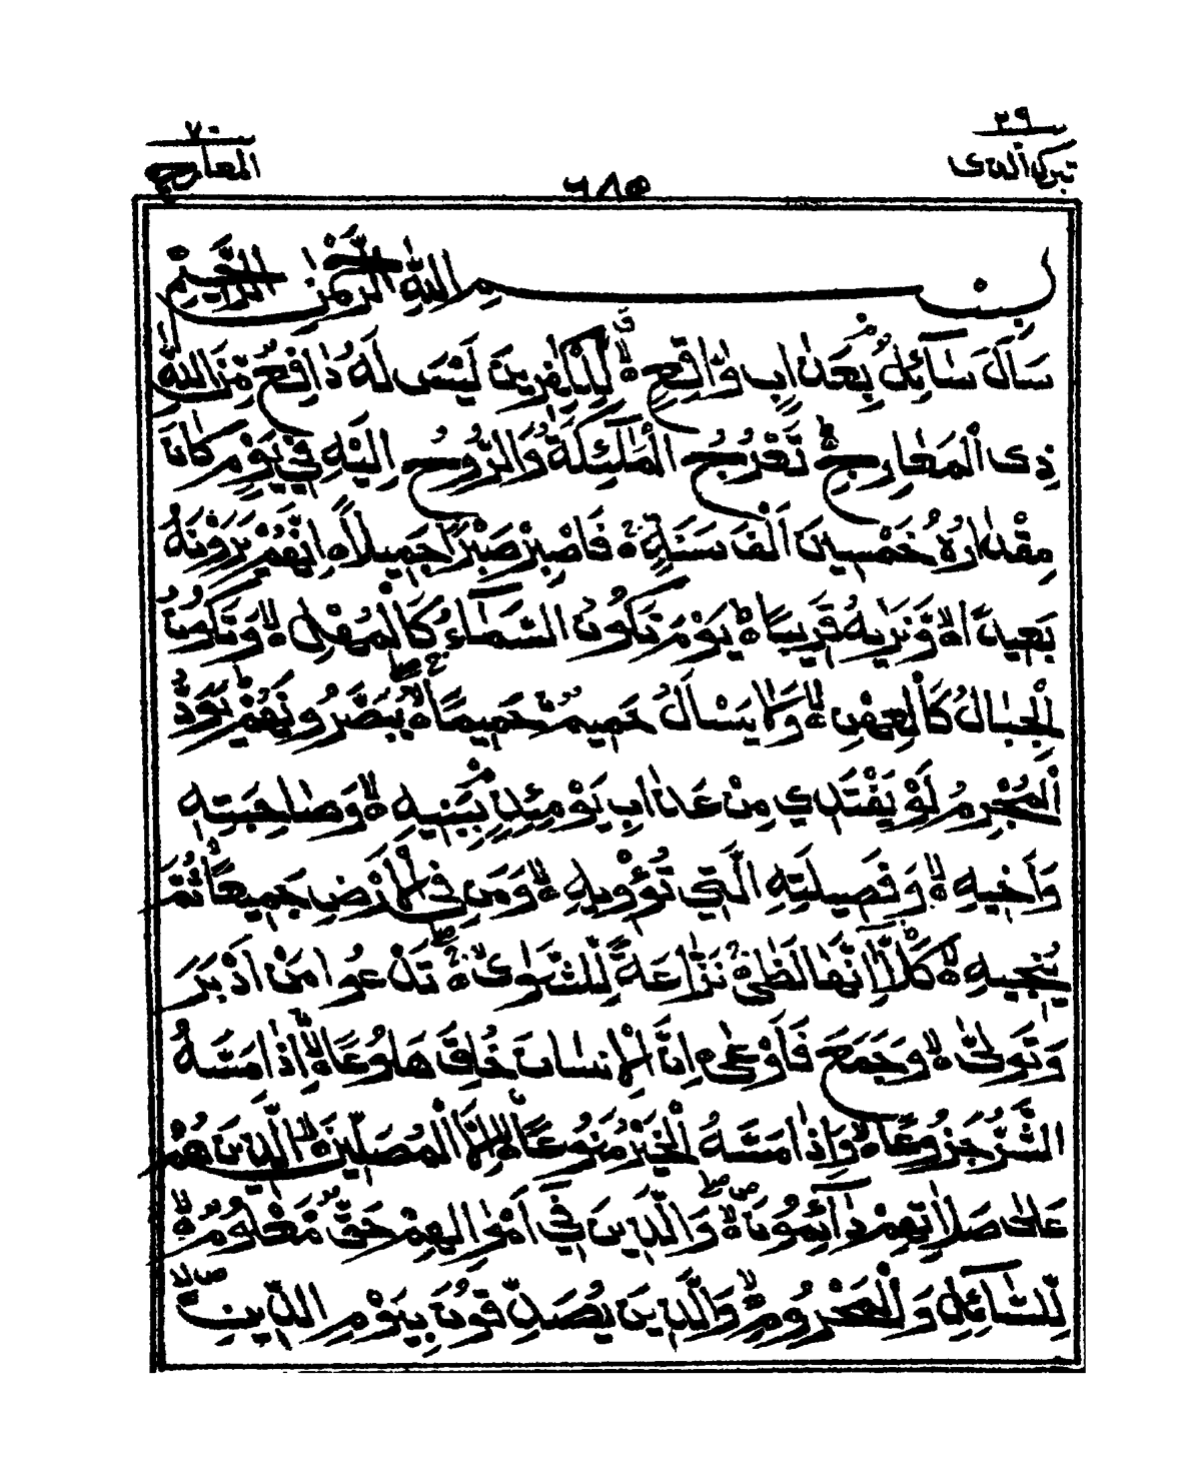 ٢٩
تبرك الذى
٦٨٥
٧٠
المعارج
بِسْمِ اللّٰهِ الرَّحْمٰنِ الرَّحِيْمِ
سَاَلَ سَآئِلٌۢ بِعَذَابٍ وَّاقِعٍ ۙ لِّلْكٰفِرِيْنَ لَيْسَ لَهٗ دَافِعٌ ۙ مِّنَ اللّٰهِ
ذِى الْمَعَارِجِ ؕ تَعْرُجُ الْمَلٰٓئِكَةُ وَالرُّوْحُ اِلَيْهِ فِيْ يَوْمٍ كَانَ
مِقْدَارُهٗ خَمْسِيْنَ اَلْفَ سَنَةٍ ۚ فَاصْبِرْ صَبْرًا جَمِيْلًا ۝ اِنَّهُمْ يَرَوْنَهٗ
بَعِيْدًا ۙ وَّنَرٰىهُ قَرِيْبًا ؕ يَوْمَ تَكُوْنُ السَّمَآءُ كَالْمُهْلِ ۙ وَتَكُوْنُ
الْجِبَالُ كَالْعِهْنِ ۙ وَلَا يَسْـَٔلُ حَمِيْمٌ حَمِيْمًا ۚۖ يُّبَصَّرُوْنَهُمْ ؕ يَوَدُّ
الْمُجْرِمُ لَوْ يَفْتَدِيْ مِنْ عَذَابِ يَوْمِئِذٍۢ بِبَنِيْهِ ۙ وَصَاحِبَتِهٖ
وَاَخِيْهِ ۙ وَفَصِيْلَتِهِ الَّتِيْ تُـْٔوِيْهِ ۙ وَمَنْ فِى الْاَرْضِ جَمِيْعًا ۙ ثُمَّ
يُنْجِيْهِ ۙ كَلَّا ؕ اِنَّهَا لَظٰى ۙ نَزَّاعَةً لِّلشَّوٰى ۚۖ تَدْعُوْا مَنْ اَدْبَرَ
وَتَوَلّٰى ۙ وَجَمَعَ فَاَوْعٰى ۝ اِنَّ الْاِنْسَانَ خُلِقَ هَلُوْعًا ۙ اِذَا مَسَّهُ
الشَّرُّ جَزُوْعًا ۙ وَّاِذَا مَسَّهُ الْخَيْرُ مَنُوْعًا ۙ اِلَّا الْمُصَلِّيْنَ ۙ الَّذِيْنَ هُمْ
عَلٰى صَلَاتِهِمْ دَآئِمُوْنَ ۪ۙ وَالَّذِيْنَ فِيْٓ اَمْوَالِهِمْ حَقٌّ مَّعْلُوْمٌ ۙ
لِّلسَّآئِلِ وَالْمَحْرُوْمِ ۙ وَالَّذِيْنَ يُصَدِّقُوْنَ بِيَوْمِ الدِّيْنِ ۪ۙ